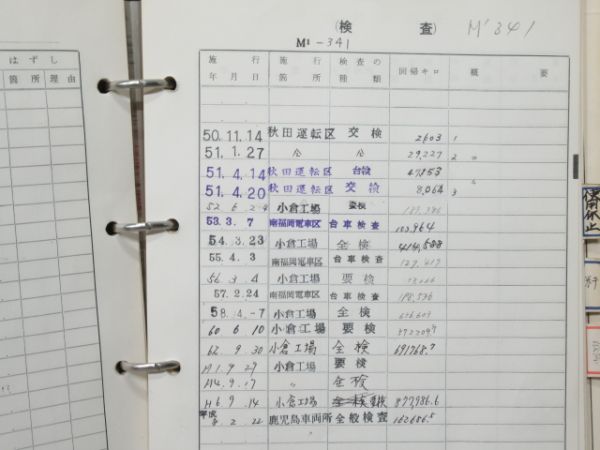 はずし
箇所 理由
(検 査) M'341
M' -341
施行年月日 施行箇所 検査の種類 回帰キロ 概 要
50.11.14 秋田運転区 交検 2603 1
51.1.27 〃 〃 29,227 2 〃
51.4.14 秋田運転区 台検 47,153
51.4.20 秋田運転区 交検 8,064 3
52 6 24 小倉工場 要検
53.3.7 南福岡電車区 台車検査 103964
54.3.23 小倉工場 全検
55.4.3 南福岡電車区 台車検査 127,417
56.3.4 小倉工場 要検
57.2.24 南福岡電車区 台車検査 188,536
58.4.-7 小倉工場 全検
60 6 10 小倉工場 要検
62. 9. 30 小倉工場 全検 691768.7
H1.9.27 小倉工場 要検
H4.9.17 〃 全検
H6 9.14 小倉工場 877,986.6
平成 8.2.22 鹿児島車両所 全般検査 162686.5
使用休止